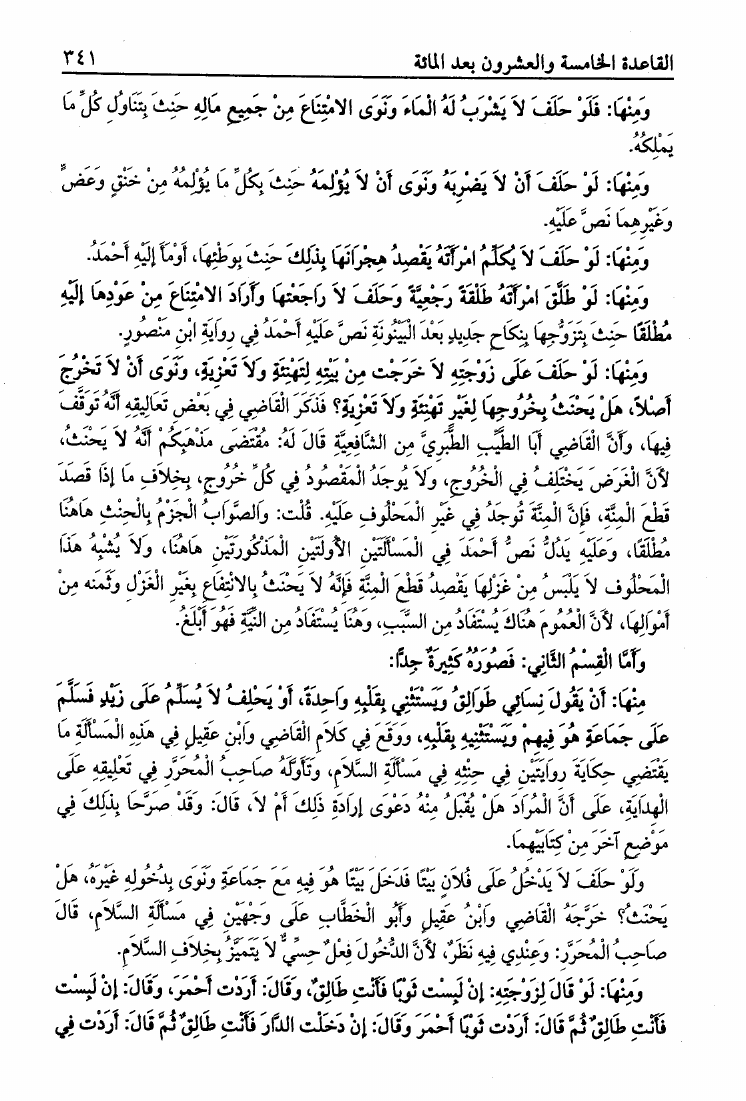 القاعدة الخامسة والعشرون بعد المائة ٣٤١
وَمِنْهَا: فَلَوْ حَلَفَ لاَ يَشْرَبُ لَهُ الْمَاءَ وَنَوَى الامْتِنَاعَ مِنْ جَمِيعِ مَالِهِ حَنِثَ بِتَنَاوُلِ كُلِّ مَا
يَمْلِكُهُ.
وَمِنْهَا: لَوْ حَلَفَ أَنْ لاَ يَضْرِبَهُ وَنَوَى أَنْ لاَ يُؤْلِمَهُ حَنِثَ بِكُلِّ مَا يُؤْلِمُهُ مِنْ خَنْقٍ وَعَضٍّ
وَغَيْرِهِمَا نَصَّ عَلَيْهِ.
وَمِنْهَا: لَوْ حَلَفَ لاَ يُكَلِّمُ امْرَأَتَهُ يَقْصِدُ هِجْرَانَهَا بِذَلِكَ حَنِثَ بِوَطْئِهَا، أَوْمَأَ إِلَيْهِ أَحْمَدُ.
وَمِنْهَا: لَوْ طَلَّقَ امْرَأَتَهُ طَلْقَةً رَجْعِيَّةً وَحَلَفَ لاَ رَاجَعْتهَا وَأَرَادَ الامْتِنَاعَ مِنْ عَوْدِهَا إِلَيْهِ
مُطْلَقًا حَنِثَ بِتَزَوُّجِهَا بِنِكَاحٍ جَدِيدٍ بَعْدَ الْبَيْنُونَةِ نَصَّ عَلَيْهِ أَحْمَدُ فِي رِوَايَةِ ابْنِ مَنْصُورٍ.
وَمِنْهَا: لَوْ حَلَفَ عَلَى زَوْجَتِهِ لاَ خَرَجَت مِنْ بَيْتِهِ لِتَهْنِئَةٍ وَلاَ تَعْزِيَةٍ، وَنَوَى أَنْ لاَ تَخْرُجَ
أَصْلاً، هَلْ يَحْنَثُ بِخُرُوجِهَا لِغَيْرِ تَهْنِئَةٍ وَلاَ تَعْزِيَةٍ؟ فَذَكَرَ الْقَاضِي فِي بَعْضِ تَعَالِيقِهِ أَنَّهُ تَوَقَّفَ
فِيهَا، وَأَنَّ الْقَاضِي أَبَا الطَّيِّبِ الطَّبَرِيَّ مِن الشَّافِعِيَّةِ قَالَ لَهُ: مُقْتَضَى مَذْهَبِكُمْ أَنَّهُ لاَ يَحْنَثُ،
لأَنَّ الْغَرَضَ يَخْتَلِفُ فِي الْخُرُوجِ، وَلاَ يُوجَدُ الْمَقْصُودُ فِي كُلِّ خُرُوجٍ، بِخِلاَفِ مَا إِذَا قَصَدَ
قَطْعَ الْمِنَّةِ، فَإِنَّ الْمِنَّةَ تُوجَدُ فِي غَيْرِ الْمَحْلُوفِ عَلَيْهِ. قُلْت: وَالصَّوَابُ الْجَزْمُ بِالْحِنْثِ هَاهُنَا
مُطْلَقًا، وَعَلَيْهِ يَدُلُّ نَصُّ أَحْمَدَ فِي الْمَسْأَلَتَيْنِ الأُولَتَيْنِ الْمَذْكُورَتَيْنِ هَاهُنَا، وَلاَ يُشْبِهُ هَذَا
الْمَحْلُوف لاَ يَلْبَسُ مِنْ غَزْلِهَا يَقْصِدُ قَطْعَ الْمِنَّةِ فَإِنَّهُ لاَ يَحْنَثُ بِالانْتِفَاعِ بِغَيْرِ الْغَزْلِ وَثَمَنِه مِنْ
أَمْوَالِهَا، لأَنَّ الْعُمُومَ هُنَاكَ يُسْتَفَادُ مِن السَّبَبِ، وَهُنَا يُسْتَفَادُ مِن النِّيَّةِ فَهُوَ أَبْلَغُ.
وَأَمَّا الْقِسْمُ الثَّانِي: فَصُوَرُهُ كَثِيرَةٌ جِدًّا:
مِنْهَا: أَنْ يَقُولَ نِسَائِي طَوَالِقُ وَيَسْتَثْنِي بِقَلْبِهِ وَاحِدَةً، أَوْ يَحْلِفُ لاَ يُسَلِّمُ عَلَى زَيْدٍ فَسَلَّمَ
عَلَى جَمَاعَةٍ هُوَ فِيهِمْ وَيَسْتَثْنِيهِ بِقَلْبِهِ، وَوَقَعَ فِي كَلاَمِ الْقَاضِي وَابْنِ عَقِيلٍ فِي هَذِهِ الْمَسْأَلَةِ مَا
يَقْتَضِي حِكَايَةَ رِوَايَتَيْنِ فِي حِنْثِهِ فِي مَسْأَلَةِ السَّلاَمِ، وَتَأَوَّلَهُ صَاحِبُ الْمُحَرَّرِ فِي تَعْلِيقِهِ عَلَى
الْهِدَايَةِ، عَلَى أَنَّ الْمُرَادَ هَلْ يُقْبَلُ مِنْهُ دَعْوَى إِرَادَةِ ذَلِكَ أَمْ لاَ، قَالَ: وَقَدْ صَرَّحَا بِذَلِكَ فِي
مَوْضِعٍ آخَرَ مِنْ كِتَابَيْهِمَا.
وَلَوْ حَلَفَ لاَ يَدْخُلُ عَلَى فُلاَنٍ بَيْتًا فَدَخَلَ بَيْتًا هُوَ فِيهِ مَعَ جَمَاعَةٍ وَنَوَى بِدُخُولِهِ غَيْرَهُ، هَلْ
يَحْنَثُ؟ خَرَّجَهُ الْقَاضِي وَابْنُ عَقِيلٍ وَأَبُو الْخَطَّابِ عَلَى وَجْهَيْنِ فِي مَسْأَلَةِ السَّلاَمِ، قَالَ
صَاحِبُ الْمُحَرَّرِ: وَعِنْدِي فِيهِ نَظَرٌ، لأَنَّ الدُّخُولَ فِعْلٌ حِسِّيٌّ لاَ يَتَمَيَّزُ بِخِلاَفِ السَّلاَمِ.
وَمِنْهَا: لَوْ قَالَ لِزَوْجَتِهِ: إِنْ لَبِسْت ثَوْبًا فَأَنْتِ طَالِقٌ، وَقَالَ: أَرَدْت أَحْمَرَ، وَقَالَ: إِنْ لَبِسْت
فَأَنْتِ طَالِقٌ ثُمَّ قَالَ: أَرَدْت ثَوْبًا أَحْمَرَ وَقَالَ: إِنْ دَخَلْت الدَّارَ فَأَنْتِ طَالِقٌ ثُمَّ قَالَ: أَرَدْت فِي